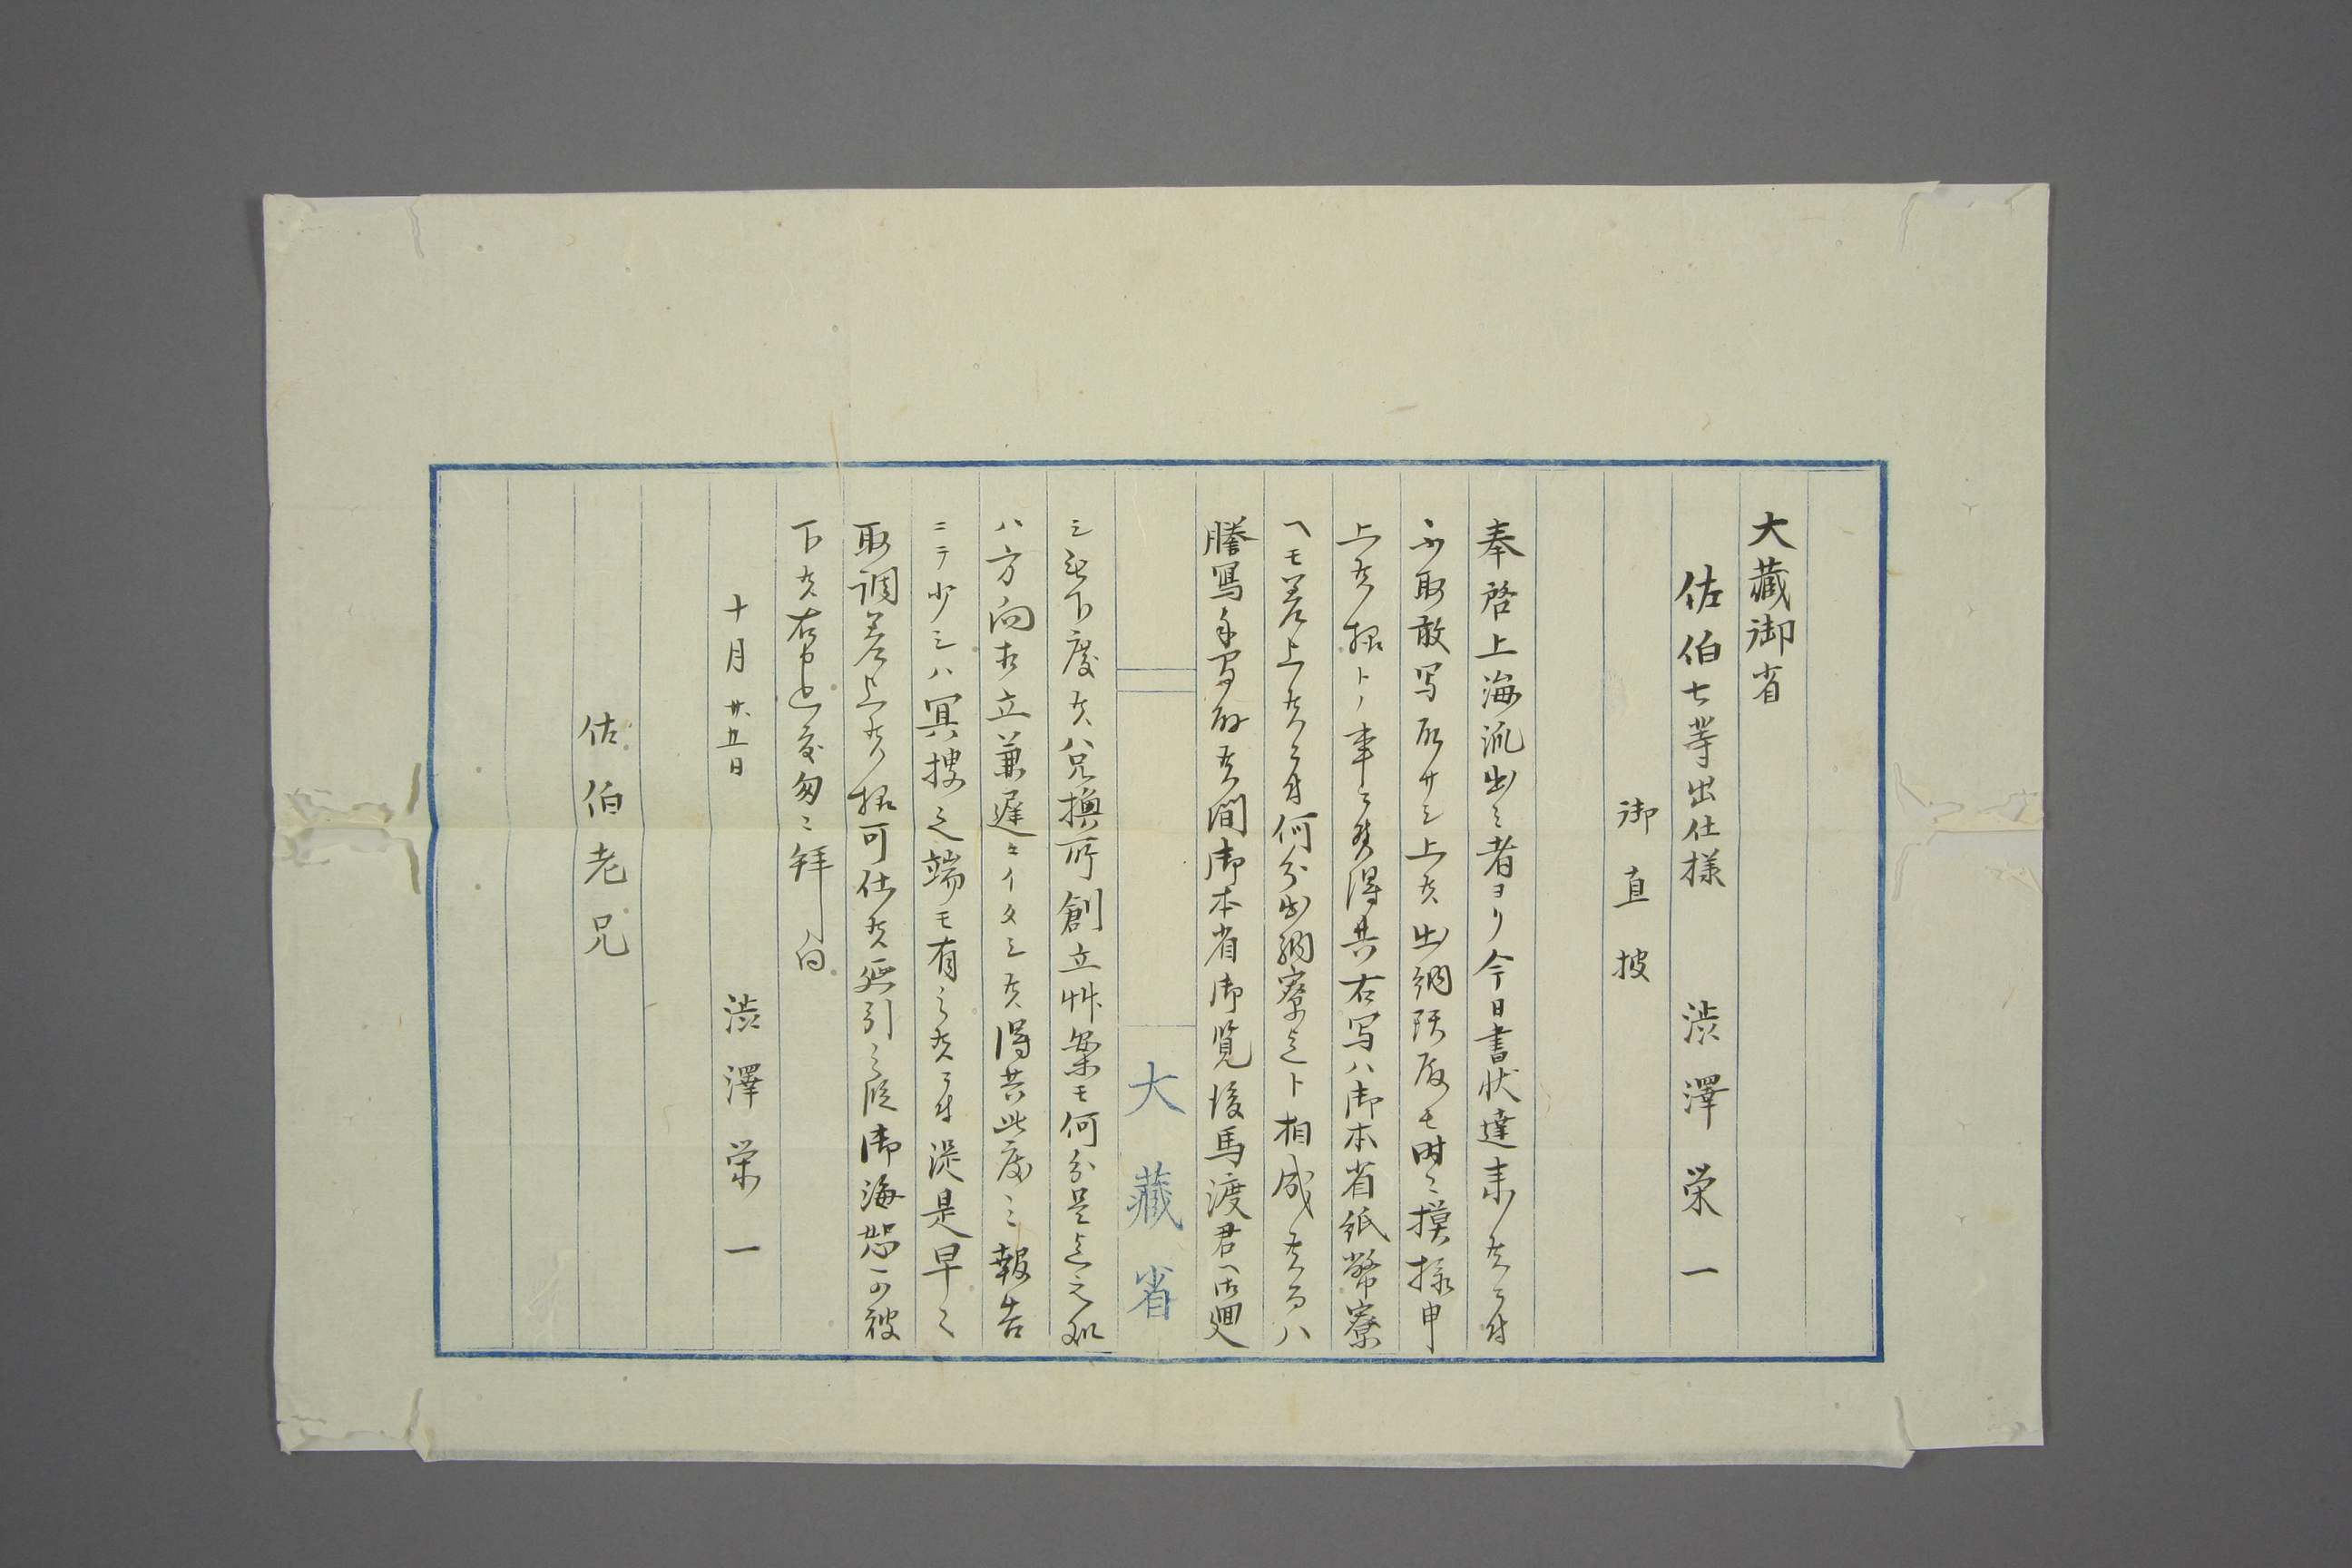 大藏御省
佐伯七等出仕様 渋澤栄一
御直披
奉啓上海派出之者ヨリ今日書状達来候ニ付
不取敢写取サシ上候出納頭殿モ時々模様申
上候様トノ事ニ候得共右写ハ御本省紙幣寮
ヘモ差上候ニ付何分出納寮迄ト相成候而ハ
謄写手間取候間御本省御覧後馬渡君ヘ御廻
シ被下度候兌換所創立艸案モ何分是迄之処
ハ方向相立兼遅々イタシ候得共此度之報告
ニテ少シハ冥捜之端モ有之候ニ付從是早々
取調差上候様可仕候延引之段御海恕可被
下候右申上度匆々拝白
十月廿五日 渋澤栄一
佐伯老兄
大藏省